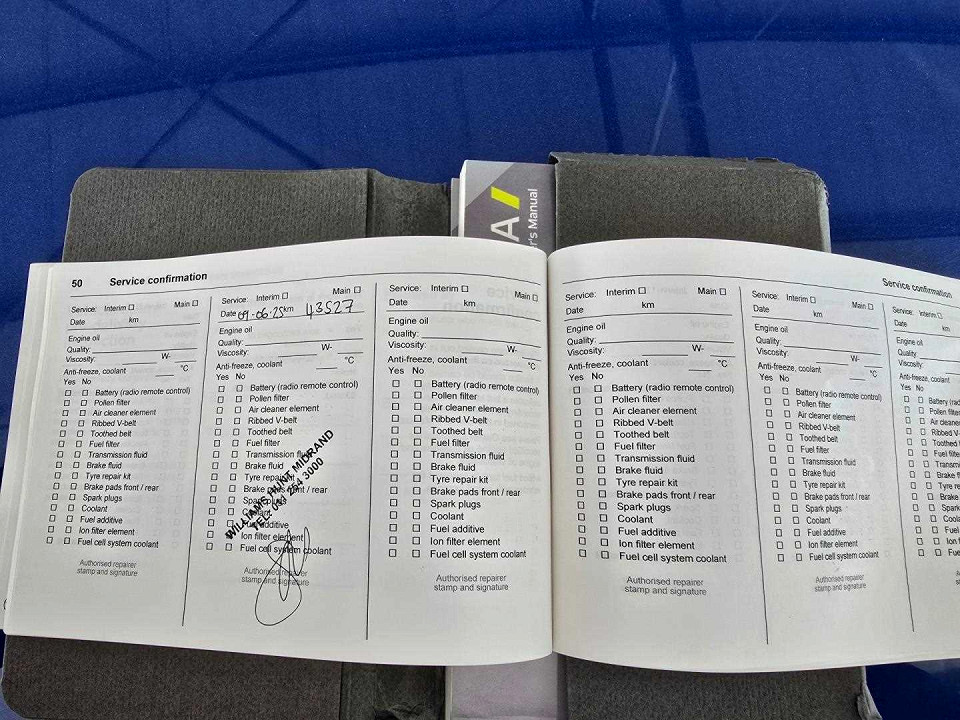 A
r's Manual
50 Service confirmation
Service: Interim ☐ Main ☐
Date km
Engine oil
Quality:
Viscosity: W-
Anti-freeze, coolant °C
Yes No
☐ ☐ Battery (radio remote control)
☐ ☐ Pollen filter
☐ ☐ Air cleaner element
☐ ☐ Ribbed V-belt
☐ ☐ Toothed belt
☐ ☐ Fuel filter
☐ ☐ Transmission fluid
☐ ☐ Brake fluid
☐ ☐ Tyre repair kit
☐ ☐ Brake pads front / rear
☐ ☐ Spark plugs
☐ ☐ Coolant
☐ ☐ Fuel additive
☐ ☐ Ion filter element
☐ ☐ Fuel cell system coolant
Authorised repairer
stamp and signature
Service: Interim ☐ Main ☐
Date 09-06-25 km 43527
Engine oil
Quality:
Viscosity: W-
Anti-freeze, coolant °C
Yes No
☐ ☐ Battery (radio remote control)
☐ ☐ Pollen filter
☐ ☐ Air cleaner element
☐ ☐ Ribbed V-belt
☐ ☐ Toothed belt
☐ ☐ Fuel filter
☐ ☐ Transmission fluid
☐ ☐ Brake fluid
☐ ☐ Tyre repair kit
☐ ☐ Brake pads front / rear
☐ ☐ Spark plugs
☐ ☐ Coolant
☐ ☐ Fuel additive
☐ ☐ Ion filter element
☐ ☐ Fuel cell system coolant
WILLIAMS HUNT MIDRAND
TEL: 011 254 3000
Authorised repairer
stamp and signature
Service: Interim ☐ Main ☐
Date km
Engine oil
Quality:
Viscosity: W-
Anti-freeze, coolant °C
Yes No
☐ ☐ Battery (radio remote control)
☐ ☐ Pollen filter
☐ ☐ Air cleaner element
☐ ☐ Ribbed V-belt
☐ ☐ Toothed belt
☐ ☐ Fuel filter
☐ ☐ Transmission fluid
☐ ☐ Brake fluid
☐ ☐ Tyre repair kit
☐ ☐ Brake pads front / rear
☐ ☐ Spark plugs
☐ ☐ Coolant
☐ ☐ Fuel additive
☐ ☐ Ion filter element
☐ ☐ Fuel cell system coolant
Authorised repairer
stamp and signature
Service confirmation
Service: Interim ☐ Main ☐
Date km
Engine oil
Quality:
Viscosity: W-
Anti-freeze, coolant °C
Yes No
☐ ☐ Battery (radio remote control)
☐ ☐ Pollen filter
☐ ☐ Air cleaner element
☐ ☐ Ribbed V-belt
☐ ☐ Toothed belt
☐ ☐ Fuel filter
☐ ☐ Transmission fluid
☐ ☐ Brake fluid
☐ ☐ Tyre repair kit
☐ ☐ Brake pads front / rear
☐ ☐ Spark plugs
☐ ☐ Coolant
☐ ☐ Fuel additive
☐ ☐ Ion filter element
☐ ☐ Fuel cell system coolant
Authorised repairer
stamp and signature
Service: Interim ☐ Main ☐
Date km
Engine oil
Quality:
Viscosity: W-
Anti-freeze, coolant °C
Yes No
☐ ☐ Battery (radio remote control)
☐ ☐ Pollen filter
☐ ☐ Air cleaner element
☐ ☐ Ribbed V-belt
☐ ☐ Toothed belt
☐ ☐ Fuel filter
☐ ☐ Transmission fluid
☐ ☐ Brake fluid
☐ ☐ Tyre repair kit
☐ ☐ Brake pads front / rear
☐ ☐ Spark plugs
☐ ☐ Coolant
☐ ☐ Fuel additive
☐ ☐ Ion filter element
☐ ☐ Fuel cell system coolant
Authorised repairer
stamp and signature
Service: Interim ☐
Date km
Engine oil
Quality:
Viscosity:
Anti-freeze, coolant
Yes No
☐ ☐ Battery (rad
☐ ☐ Pollen filte
☐ ☐ Air cleane
☐ ☐ Ribbed V-
☐ ☐ Toothed
☐ ☐ Fuel filte
☐ ☐ Transmi
☐ ☐ Brake fl
☐ ☐ Tyre re
☐ ☐ Brake
☐ ☐ Spark
☐ ☐ Cool
☐ ☐ Fuel
☐ ☐ Ion f
☐ ☐ Fu